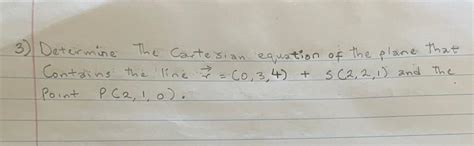 3) Determine The Cartesian equation of the plane that
Contains the line r⃗ = (0,3,4) + S(2,2,1) and the
Point P(2,1,0).